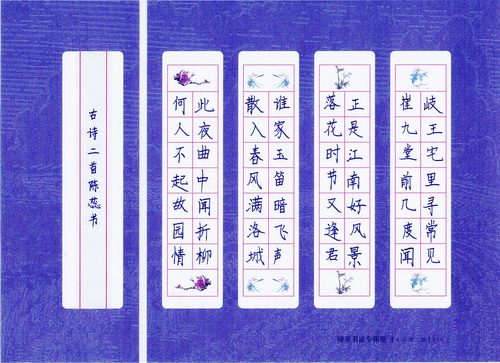 岐王宅里寻常见
崔九堂前几度闻
正是江南好风景
落花时节又逢君
谁家玉笛暗飞声
散入春风满洛城
此夜曲中闻折柳
何人不起故园情
古诗二首陈蕊书